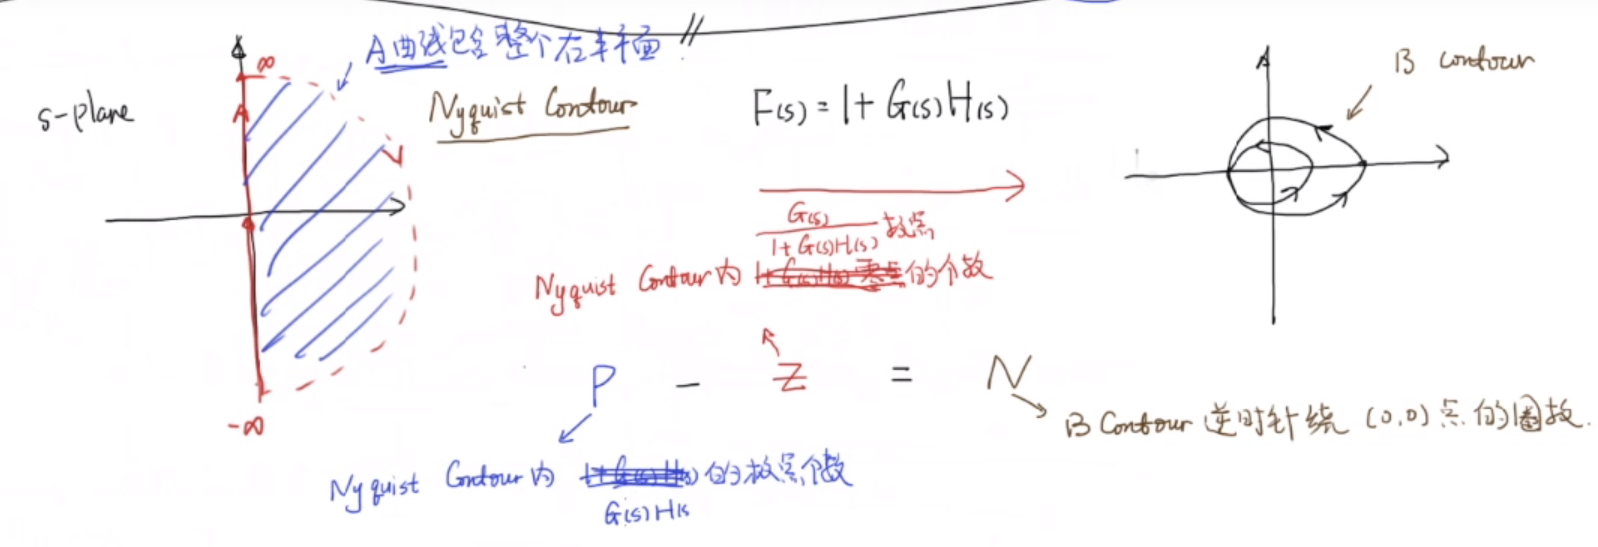 A曲线包含整个右半平面
∞
A
s-plane
Nyquist Contour
F(s) = 1 + G(s)H(s)
B contour
G(s)
1 + G(s)H(s) 极点
Nyquist Contour内 1+G(s)H(s) 零点的个数
P - Z = N
-∞
B Contour 逆时针绕 (0,0) 点的圈数.
Nyquist Contour内 1+G(s)H(s) 的极点个数
G(s)H(s